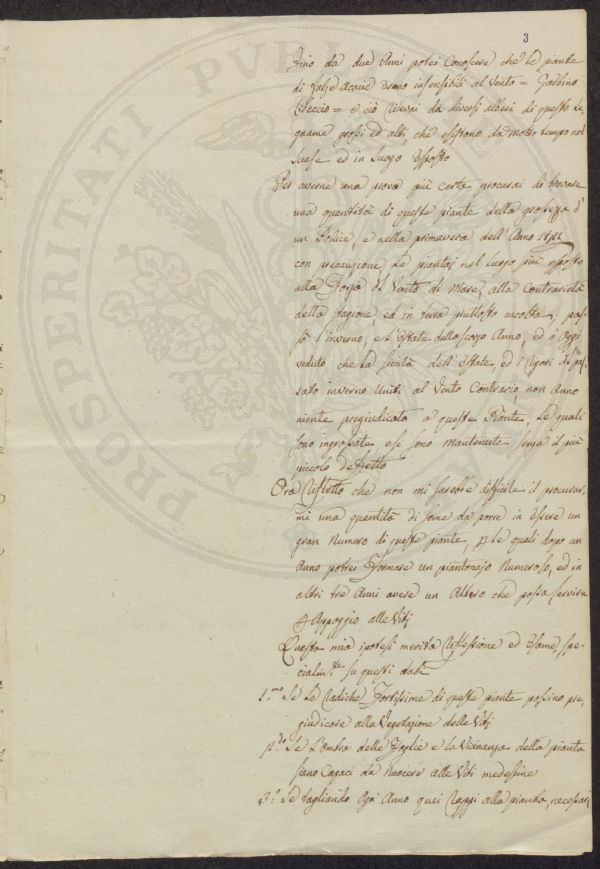 3
Fino da due Anni potei Conoscere che le piante
di false Acacie erano insensibili al Vento = Garbino
Veccio = e ciò rilevai da diversi alberi di questo Le
gname grossi ed alti, che esistono da molto tempo nel
Paese ed in Luogo esposto
Per averne una prova più certa procurai di trovare
una quantità di queste piante della grossezza d'
un Police, e nella primavera dell'Anno
con precauzione Le piantai nel Luogo più esposto
alla Forza del Vento di Mare, alla Contrarietà
della stagione, ed in terra piuttosto incolta; pas
sò l'inverno, e L'Estate dello scorso Anno, ed ò oggi
veduto che La sicità dell'Estate, ed i Rigori del pas
sato inverno Uniti al Vento Contrario, non Anno
niente pregiudicato a queste Piante, Le quali
sono ingrossate e si sono mantenute senza il più
piccolo deffetto
Ora Rifletto che non mi sarebbe difficile il procurar
mi una quantità di seme da porre in Essere un
gran Numero di queste piante, Le quali dopo un
Anno potrei Formare un piantonajo Numeroso, ed in
altri tre Anni avere un Albero che possa servire
Appoggio alle Viti
Questa mia ipotesi merita Riflessione ed Esame, spe
cialm.te su questi dati
1.mo Se Le Radiche Fortissime di queste piante possino pre
giudicare alla Vegetazione delle Viti
Se L'ombra delle Foglie e la Vicinanza della pianta
siano Capaci da Nuocere alle Viti medesime
3.o Se tagliando Ogni Anno quei Rappi alla pianta, necessarj
PROSPERITATI PVBLICAE